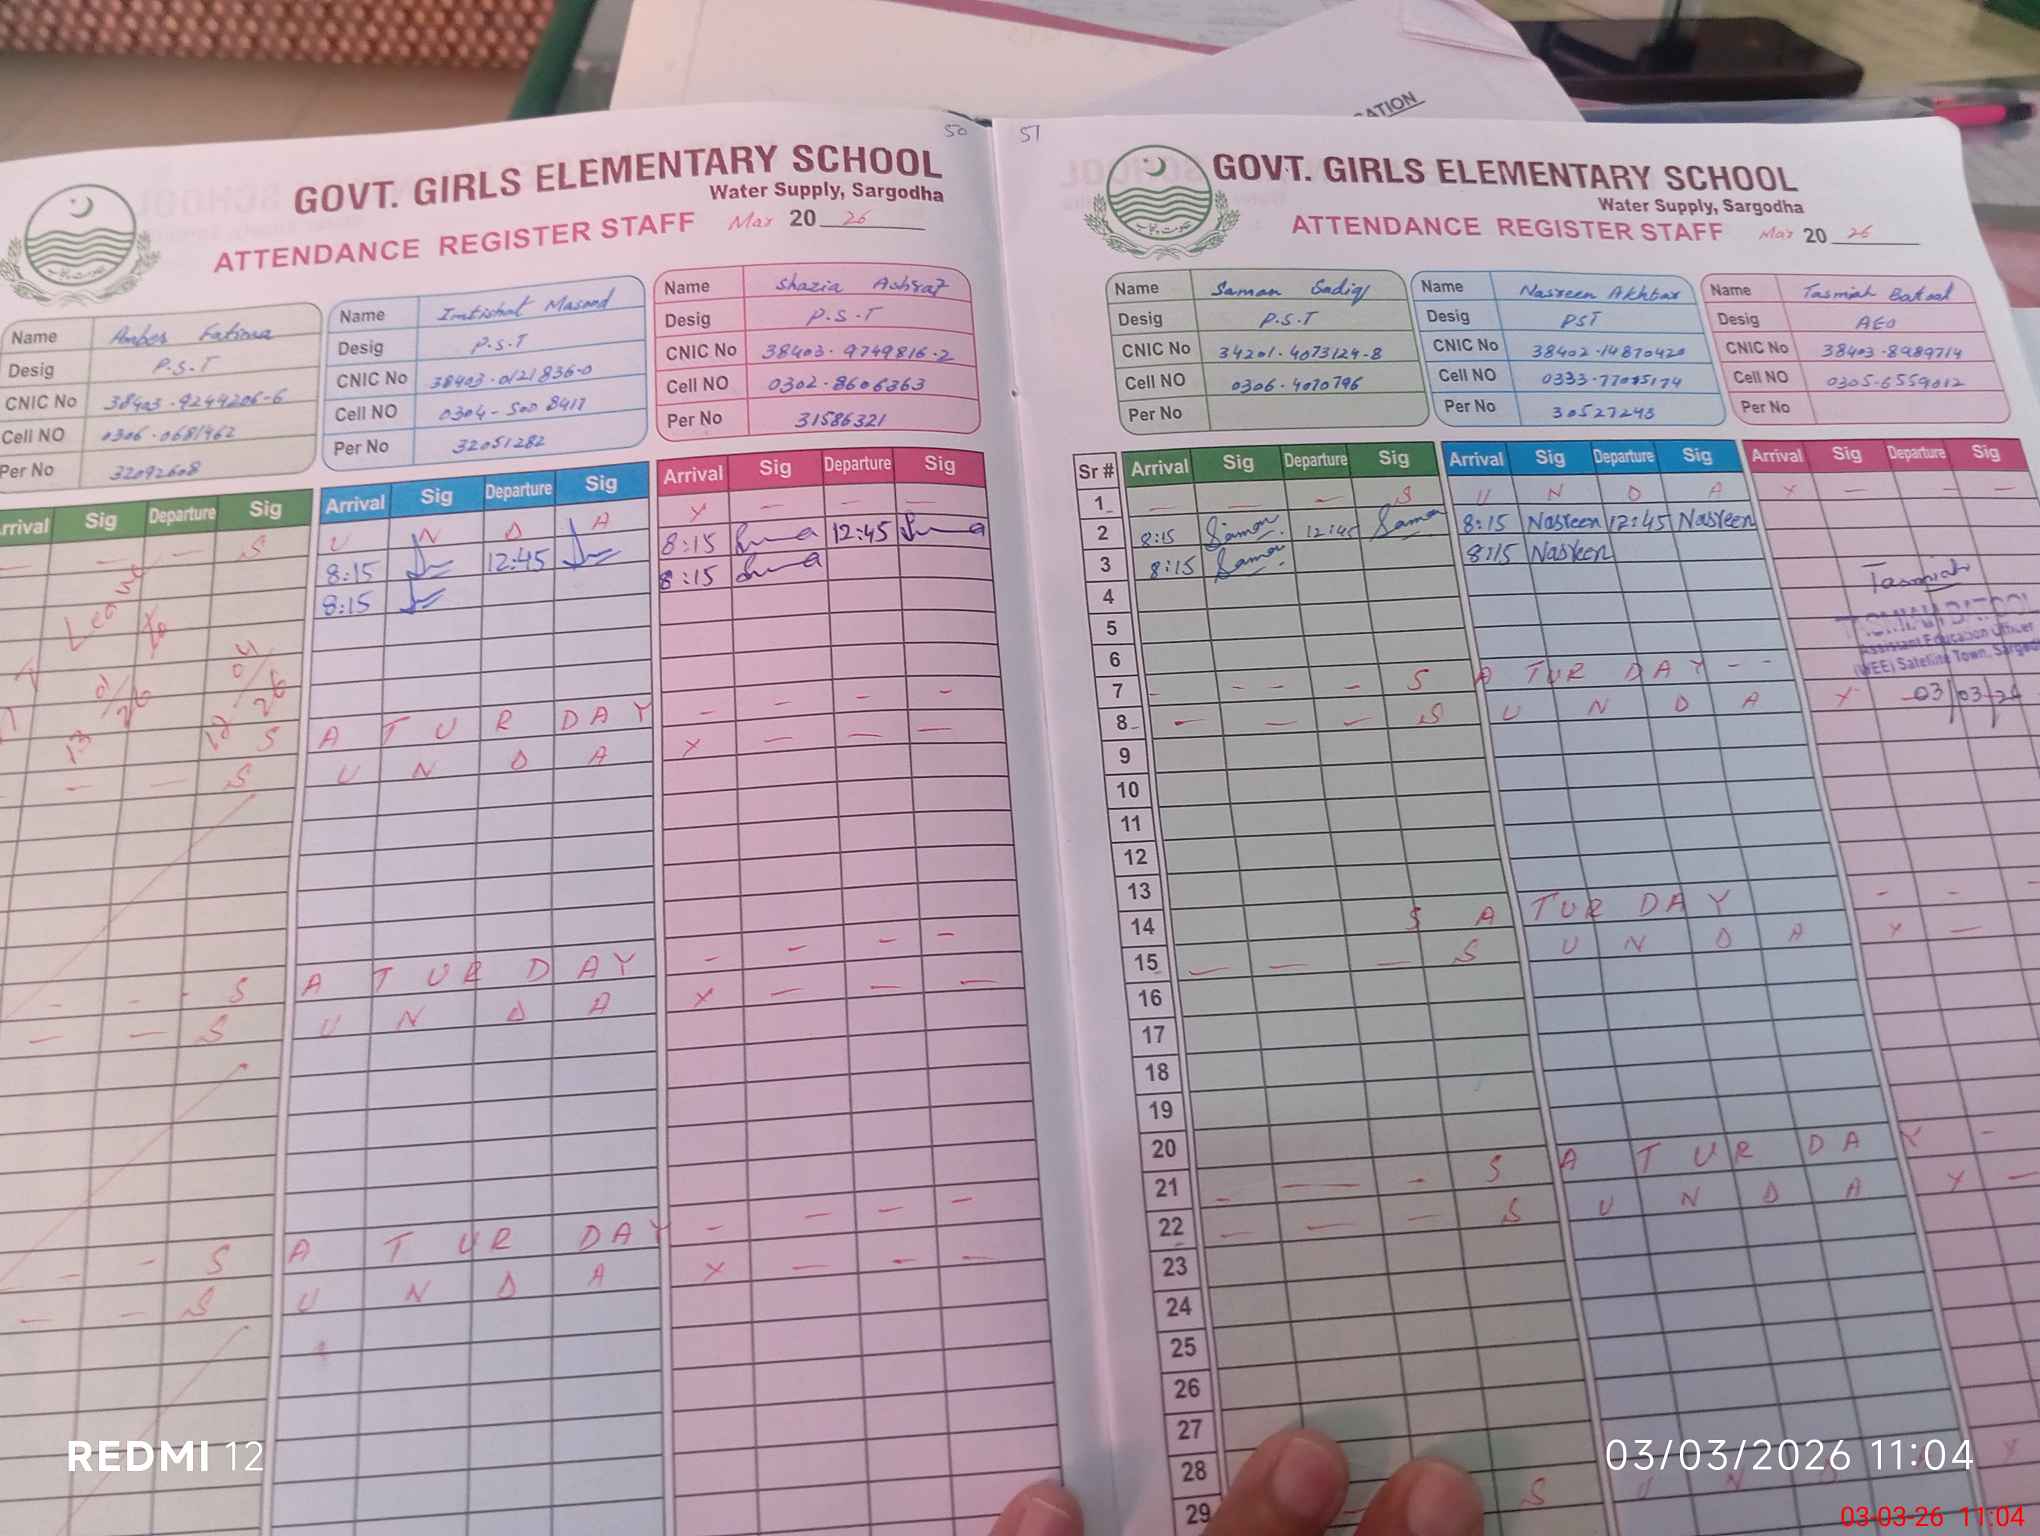 ATION
50
GOVT. GIRLS ELEMENTARY SCHOOL
Water Supply, Sargodha
ATTENDANCE REGISTER STAFF Mar 2026
Name Amber Fatima
Desig P.S.T
CNIC No 38403-9244206-6
Cell NO 0306-0681462
Per No 32092608
Name Imtishal Masood
Desig P.S.T
CNIC No 38403-0121836-0
Cell NO 0304-500 8417
Per No 32051282
Name Shazia Ashraf
Desig P.S.T
CNIC No 38403-9749816-2
Cell NO 0302-8606363
Per No 31586321
rrival Sig Departure Sig Arrival Sig Departure Sig Arrival Sig Departure Sig
- - - S U N D A Y - -
8:15 12:45 8:15 12:45
8:15 8:15
Leave
- - - S A T U R D A Y - - - -
- - - S U N D A Y - - -
- - - S A T U R D A Y - - -
- - S U N D A Y - - -
- - S A T U R D A Y - - - -
- - S U N D A Y - - -
51
GOVT. GIRLS ELEMENTARY SCHOOL
Water Supply, Sargodha
ATTENDANCE REGISTER STAFF Mar 2026
Name Saman Sadiq
Desig P.S.T
CNIC No 34201-4073124-8
Cell NO 0306-4070796
Per No
Name Nasreen Akhtar
Desig PST
CNIC No 38402-14870420
Cell NO
Per No 30527243
Name Tasmiah Batool
Desig AEO
CNIC No 38403-8989714
Cell NO 0305-6559012
Per No
Sr # Arrival Sig Departure Sig Arrival Sig Departure Sig Arrival Sig Departure Sig
1 - - - S U N D A Y - - -
2 8:15 Saman 12:45 Saman 8:15 Nasreen 12:45 Nasreen
3 8:15 Saman 8:15 Nasreen
4
5
6
7 - - - - S A T U R D A Y - -
8 - - - S U N D A Y
Tasmiah
TASMIAH BATOOL
Assistant Education Officer
(WEE) Satellite Town, Sargodha
03/03/26
9
10
11
12
13
14 S A T U R D A Y - - -
15 - - - S U N D A Y -
16
17
18
19
20
21 - - - S A T U R D A Y -
22 - - - S U N D A Y -
23
24
25
26
27
28
29 - S U N D Y
REDMI 12
03/03/2026 11:04
03-03-26 11:04